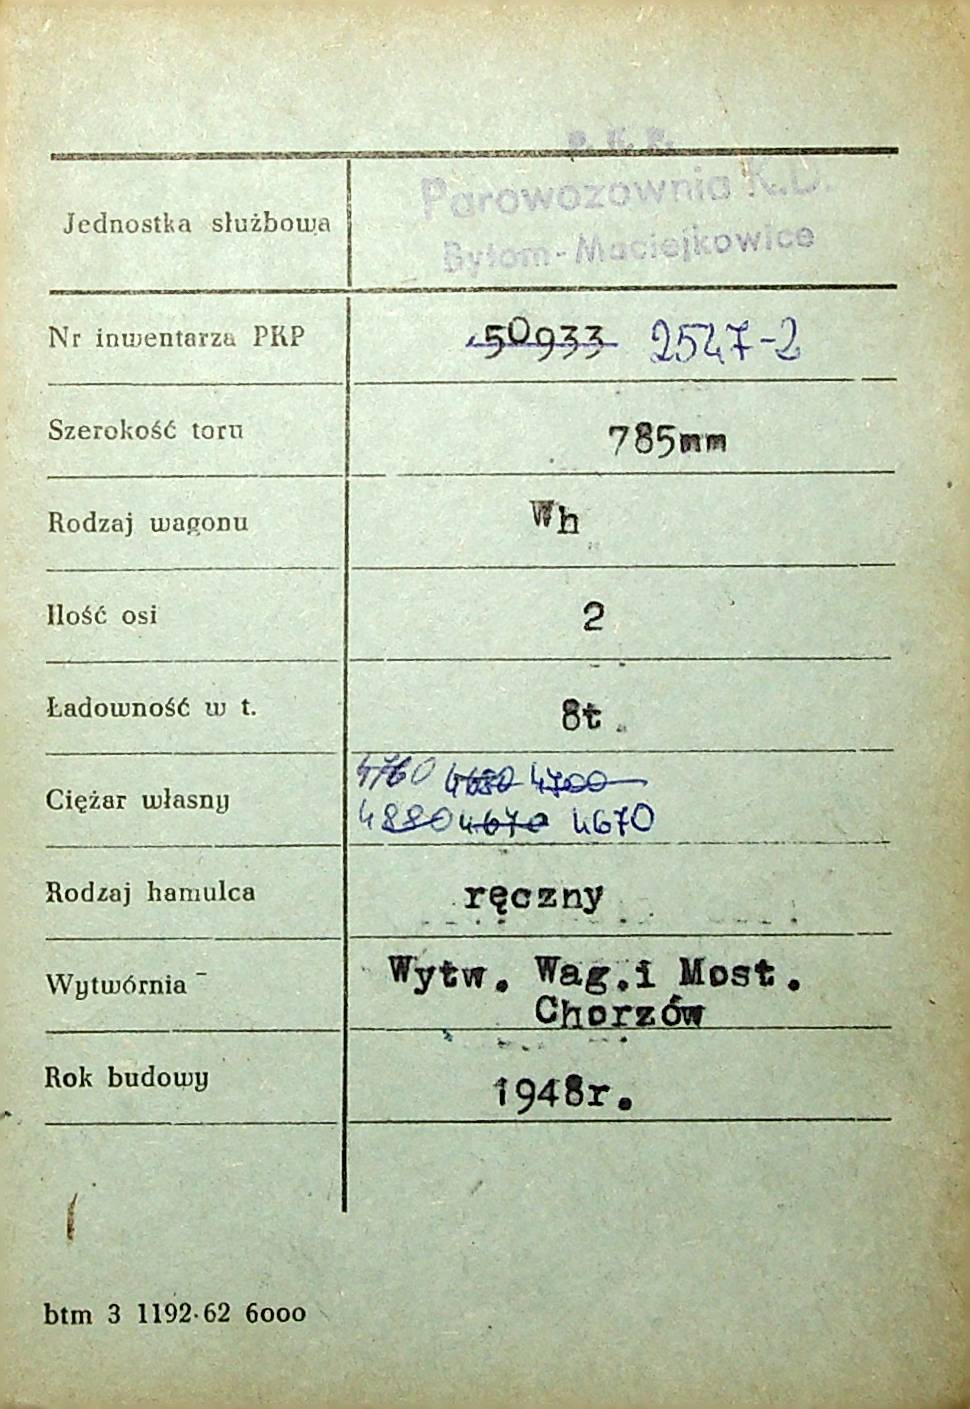 P. K. P.
Parowozownia K.D.
Jednostka służbowa
Bytom-Maciejkowice
Nr inwentarza PKP 50933 2547-2
Szerokość toru 785mm
Rodzaj wagonu Wh
Ilość osi 2
Ładowność w t. 8t
4760 4680 4700
Ciężar własny
4880 4670 4670
Rodzaj hamulca ręczny
Wytwórnia Wytw. Wag.i Most.
Chorzów
Rok budowy 1948r.
btm 3 1192·62 6000